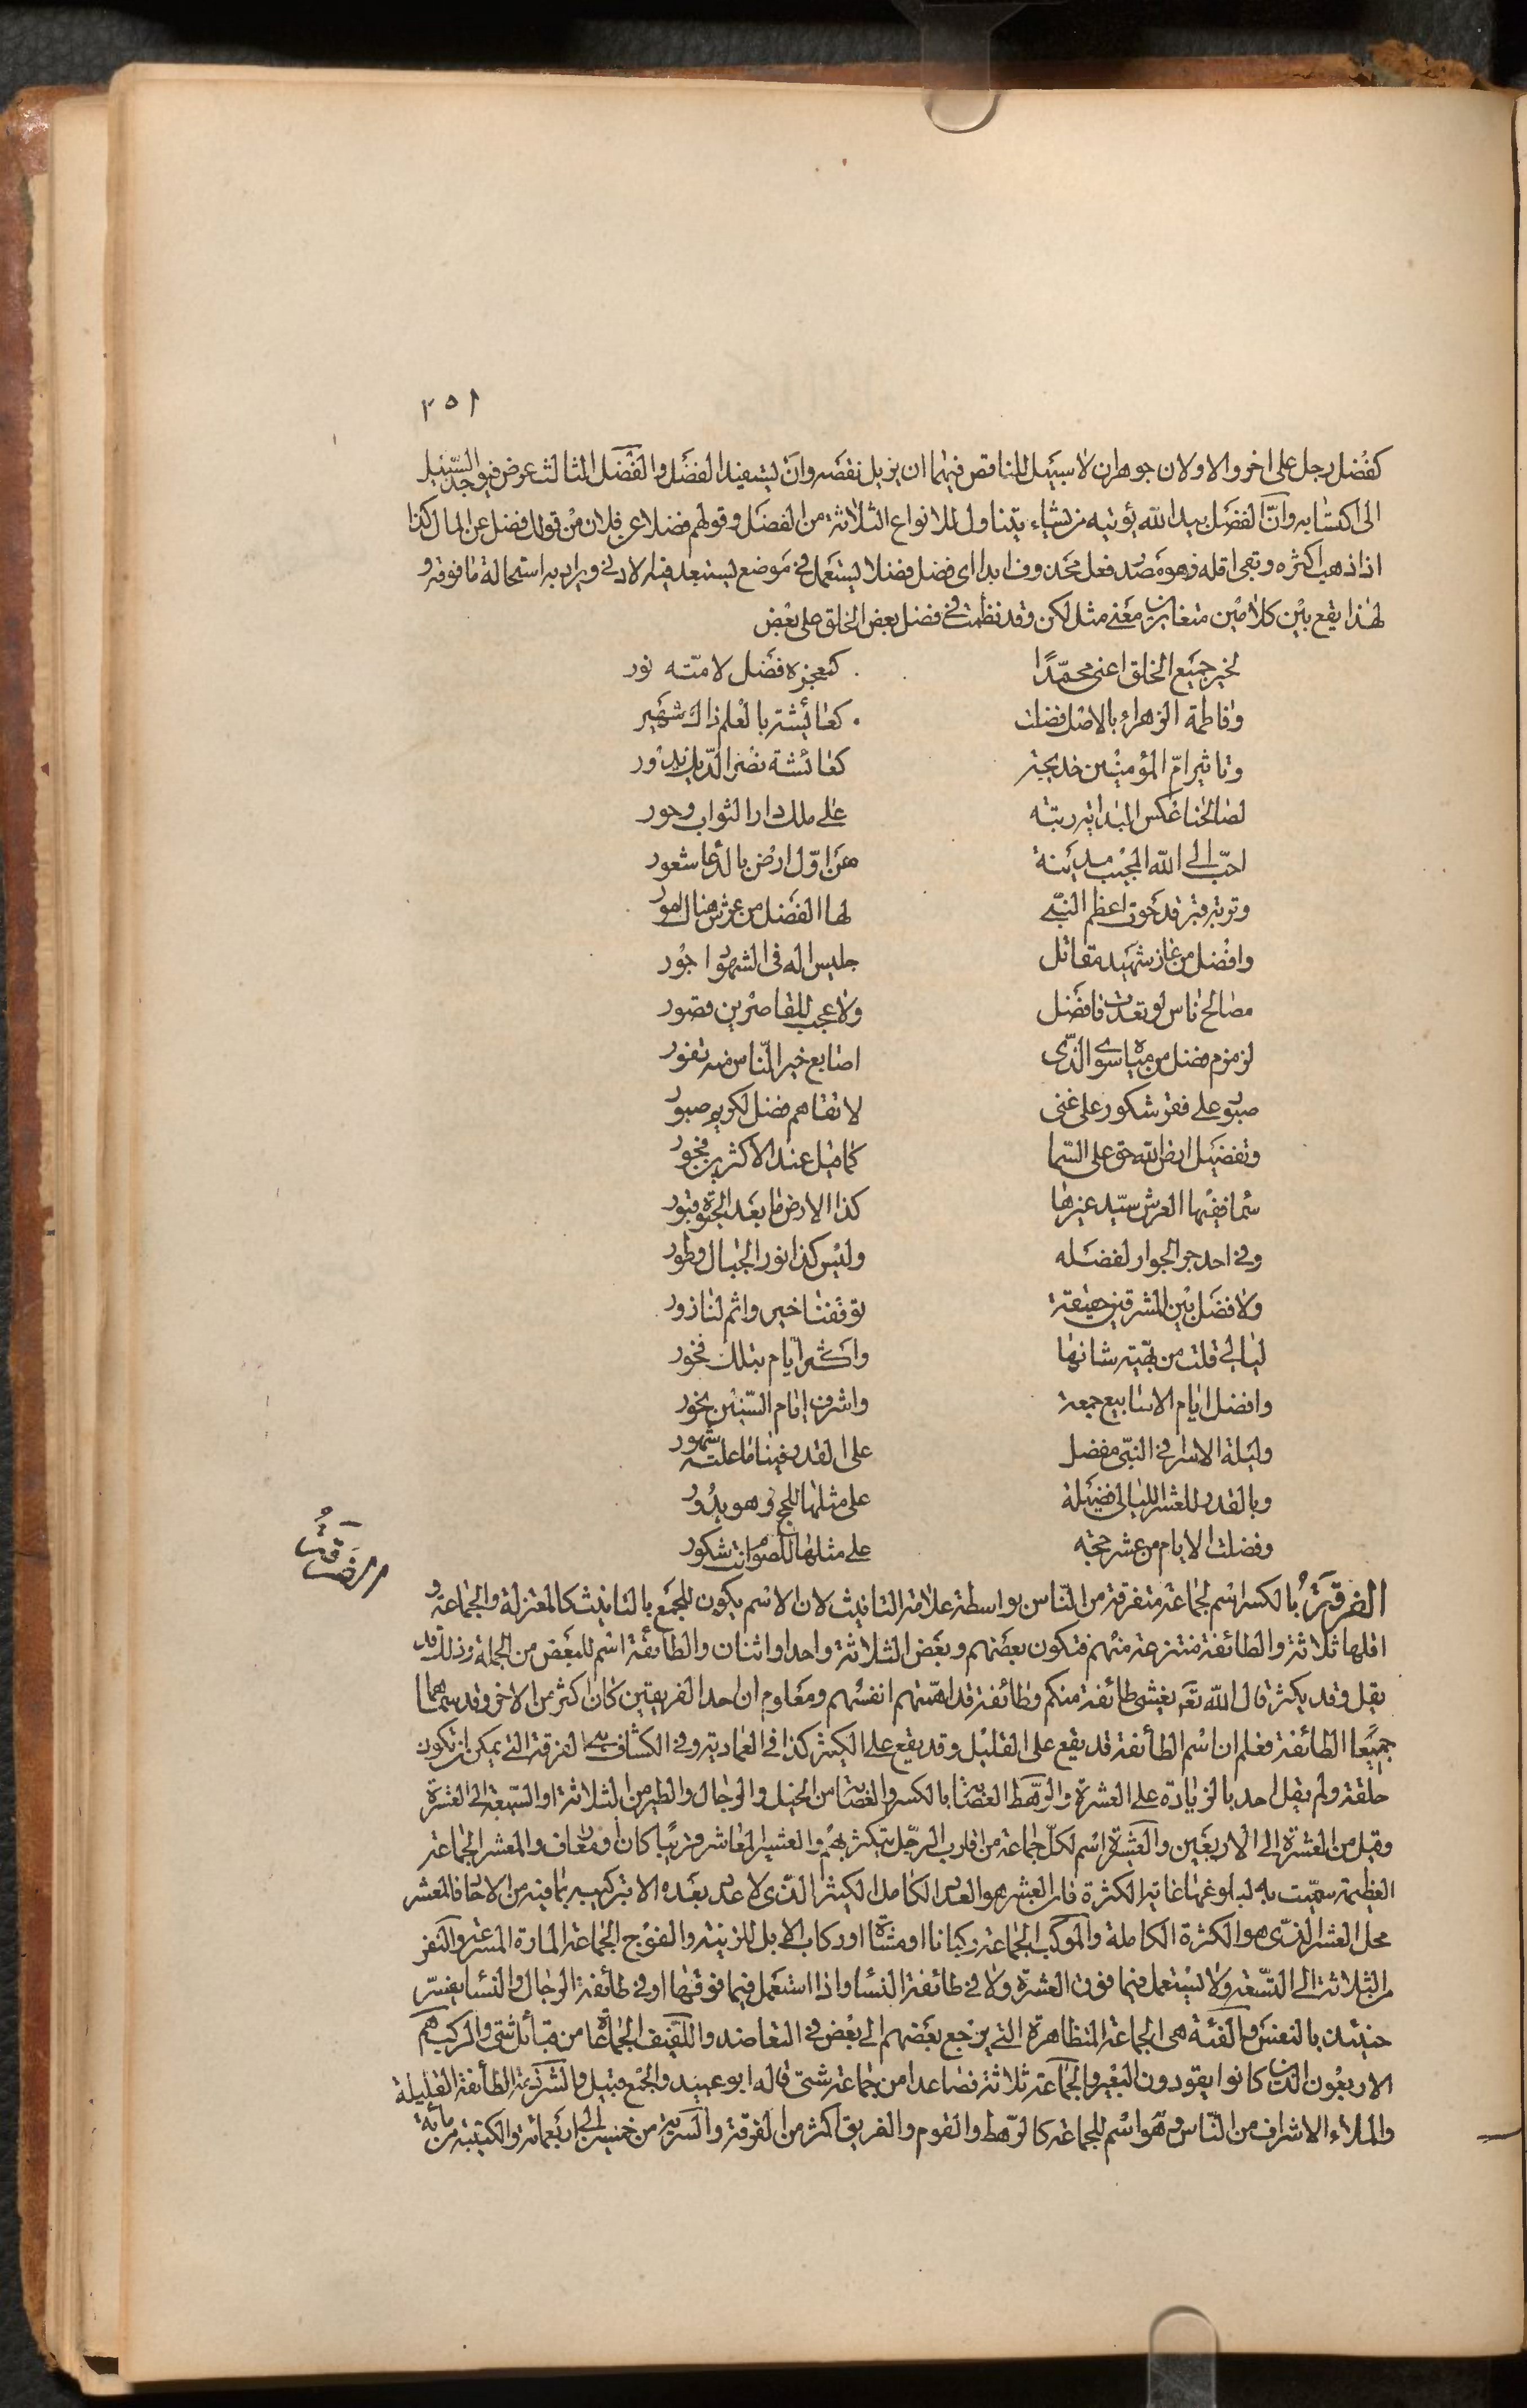 ٢٥١
كفضل رجل على اخر والاولان جوهران لا سبيل للناقص فيهما ان يزيل نقصه وان يستفيد الفضل والفضل الثالث عرض فيوجد السبيل
الى اكتسابه وانّ الفضل بيد الله يؤتيه من يشاء يتناول للانواع الثلاثة من الفضل وقولهم فضلا عن فلان من قولك فضل عن المال كذا
اذا ذهب اكثره وبقي اقله وهو مصدر فعل محذوف ابدا اى فضل فضلا يستعمل في موضع يستبعد فيه الادنى ويراد به استحالة ما فوقه و
لهذا يقع بين كلامين متغايرين معنى مثل لكن وقد نظمت في فضل بعض الخلق على بعض
لخير جميع الخلق اعنى محمّدًا كمعجزه فضل لامته نور
وفاطمة الزهراء بالاصل فضلت كعائيشة بالعلم ذاك شهير
وتاثير امّ المؤمنين خديجة كعائشة نصر الدين يدور
لصالحنا عكس البداية رتبة على ملك دار الثواب وحور
احبّ الى الله المجيب مدينة هى اوّل ارض بالدعا شعور
وتربة قبر قد حوى اعظم النبي لها الفضل من عرش هناك امور
وافضل من غاز شهيد مقاتل جليس اله فى الشهود اجور
مصالح ناس لو تعدت فافضل ولا عجب للقاصرين قصور
لزمزم فضل من مياه سوى الذى اصابع خير الناس منه تفور
صبور على فقر شكور على غنى لاتقاهم فضل لكريم صبور
وتفضيل ارض الله حق على السما كما قيل عند الاكثرين فجور
سما فيها العرش سيد غيرها كذا الارض ما بعد الحيوة قبور
وفي احد جر الجوار لفضله وليس كذا نور الجبال وطور
ولا فضل بين المشرقين حقيقة توقفنا خير واثم لنا زور
ليالي قلت من بهية شانها واكثر ايام بتلك فخور
وافضل ايام الاسابيع جمعة واشرف ايام السنين نحور
وليلة الاسرا في النبي مفضل على القدر فينا ما علته شهور
وبالقدر للعشر الليالى فضيلة على مثلها للحج وهو بدور
وفضلت الايام من عشر حجة على مثلها للصوم انت شكور
الفرقة
الفرقة بالكسر اسم لجماعة متفرقة من الناس بواسطة علامة التانيث لان الاسم يكون للجمع بالتانيث كالمعتزلة والجماعة و
اقلها ثلاثة والطائفة منتزعة منهم فتكون بعضهم وبعض الثلاثة واحد او اثنان والطائفة اسم للبعض من الجملة وذلك قد
يقل وقد يكثر قال الله تع يغشى طائفة منكم وطائفة قد اهمتهم انفسهم ومعلوم ان احد الفريقين كان اكثر من الاخر وقد سماهما
جميعا الطائفة فعلم ان اسم الطائفة قد يقع على القليل وقد يقع على الكثير كذا في العمادية وفي الكشاف هى الفرقة التى يمكن ان تكون
حلقة ولم يقل احد بالزيادة على العشرة والرهط العصابة بالكسر والعصابة من الخيل والرجال والطير من الثلاثة او السبعة الى العشرة
وقيل من العشرة الى الاربعين والعشيرة اسم لكل جماعة من اقارب الرجل يتكثر بهم والعشير المعاشر قريبا كان او معارف والمعشر الجماعة
العظيمة سميت به لبلوغها غاية الكثرة فان العشر هو العدد الكامل الكثير الذى لا عدد بعده الا بتركيبه بما فيه من الاحاد فالمعشر
محل العشر الذى هو الكثرة الكاملة والموكب الجماعة ركبانا او مشاة او ركاب الابل للزينة والفوج الجماعة المارة المسرعة والنفر
من الثلاثة الى التسعة ولا يستعمل فيما فوق العشرة ولا في طائفة النساء واذا استعمل فيما فوقها او في طائفة الرجال والنساء يفسر
حينئذ بالنفس والفئة هى الجماعة المتظاهرة التى يرجع بعضهم الى بعض في التعاضد واللفيف الجماعة من قبائل شتى والركب هم
الاربعون الذين كانوا يقودون البعير والجماعة ثلاثة فصاعدا من جماعة شتى قاله ابو عبيد والجمع قبيل والشرذمة الطائفة القليلة
والملاء الاشراف من الناس وهو اسم للجماعة كالرهط والقوم والفريق اكثر من الفرقة والسرية من خمسين الى اربعمائة والكتيبة من مائة